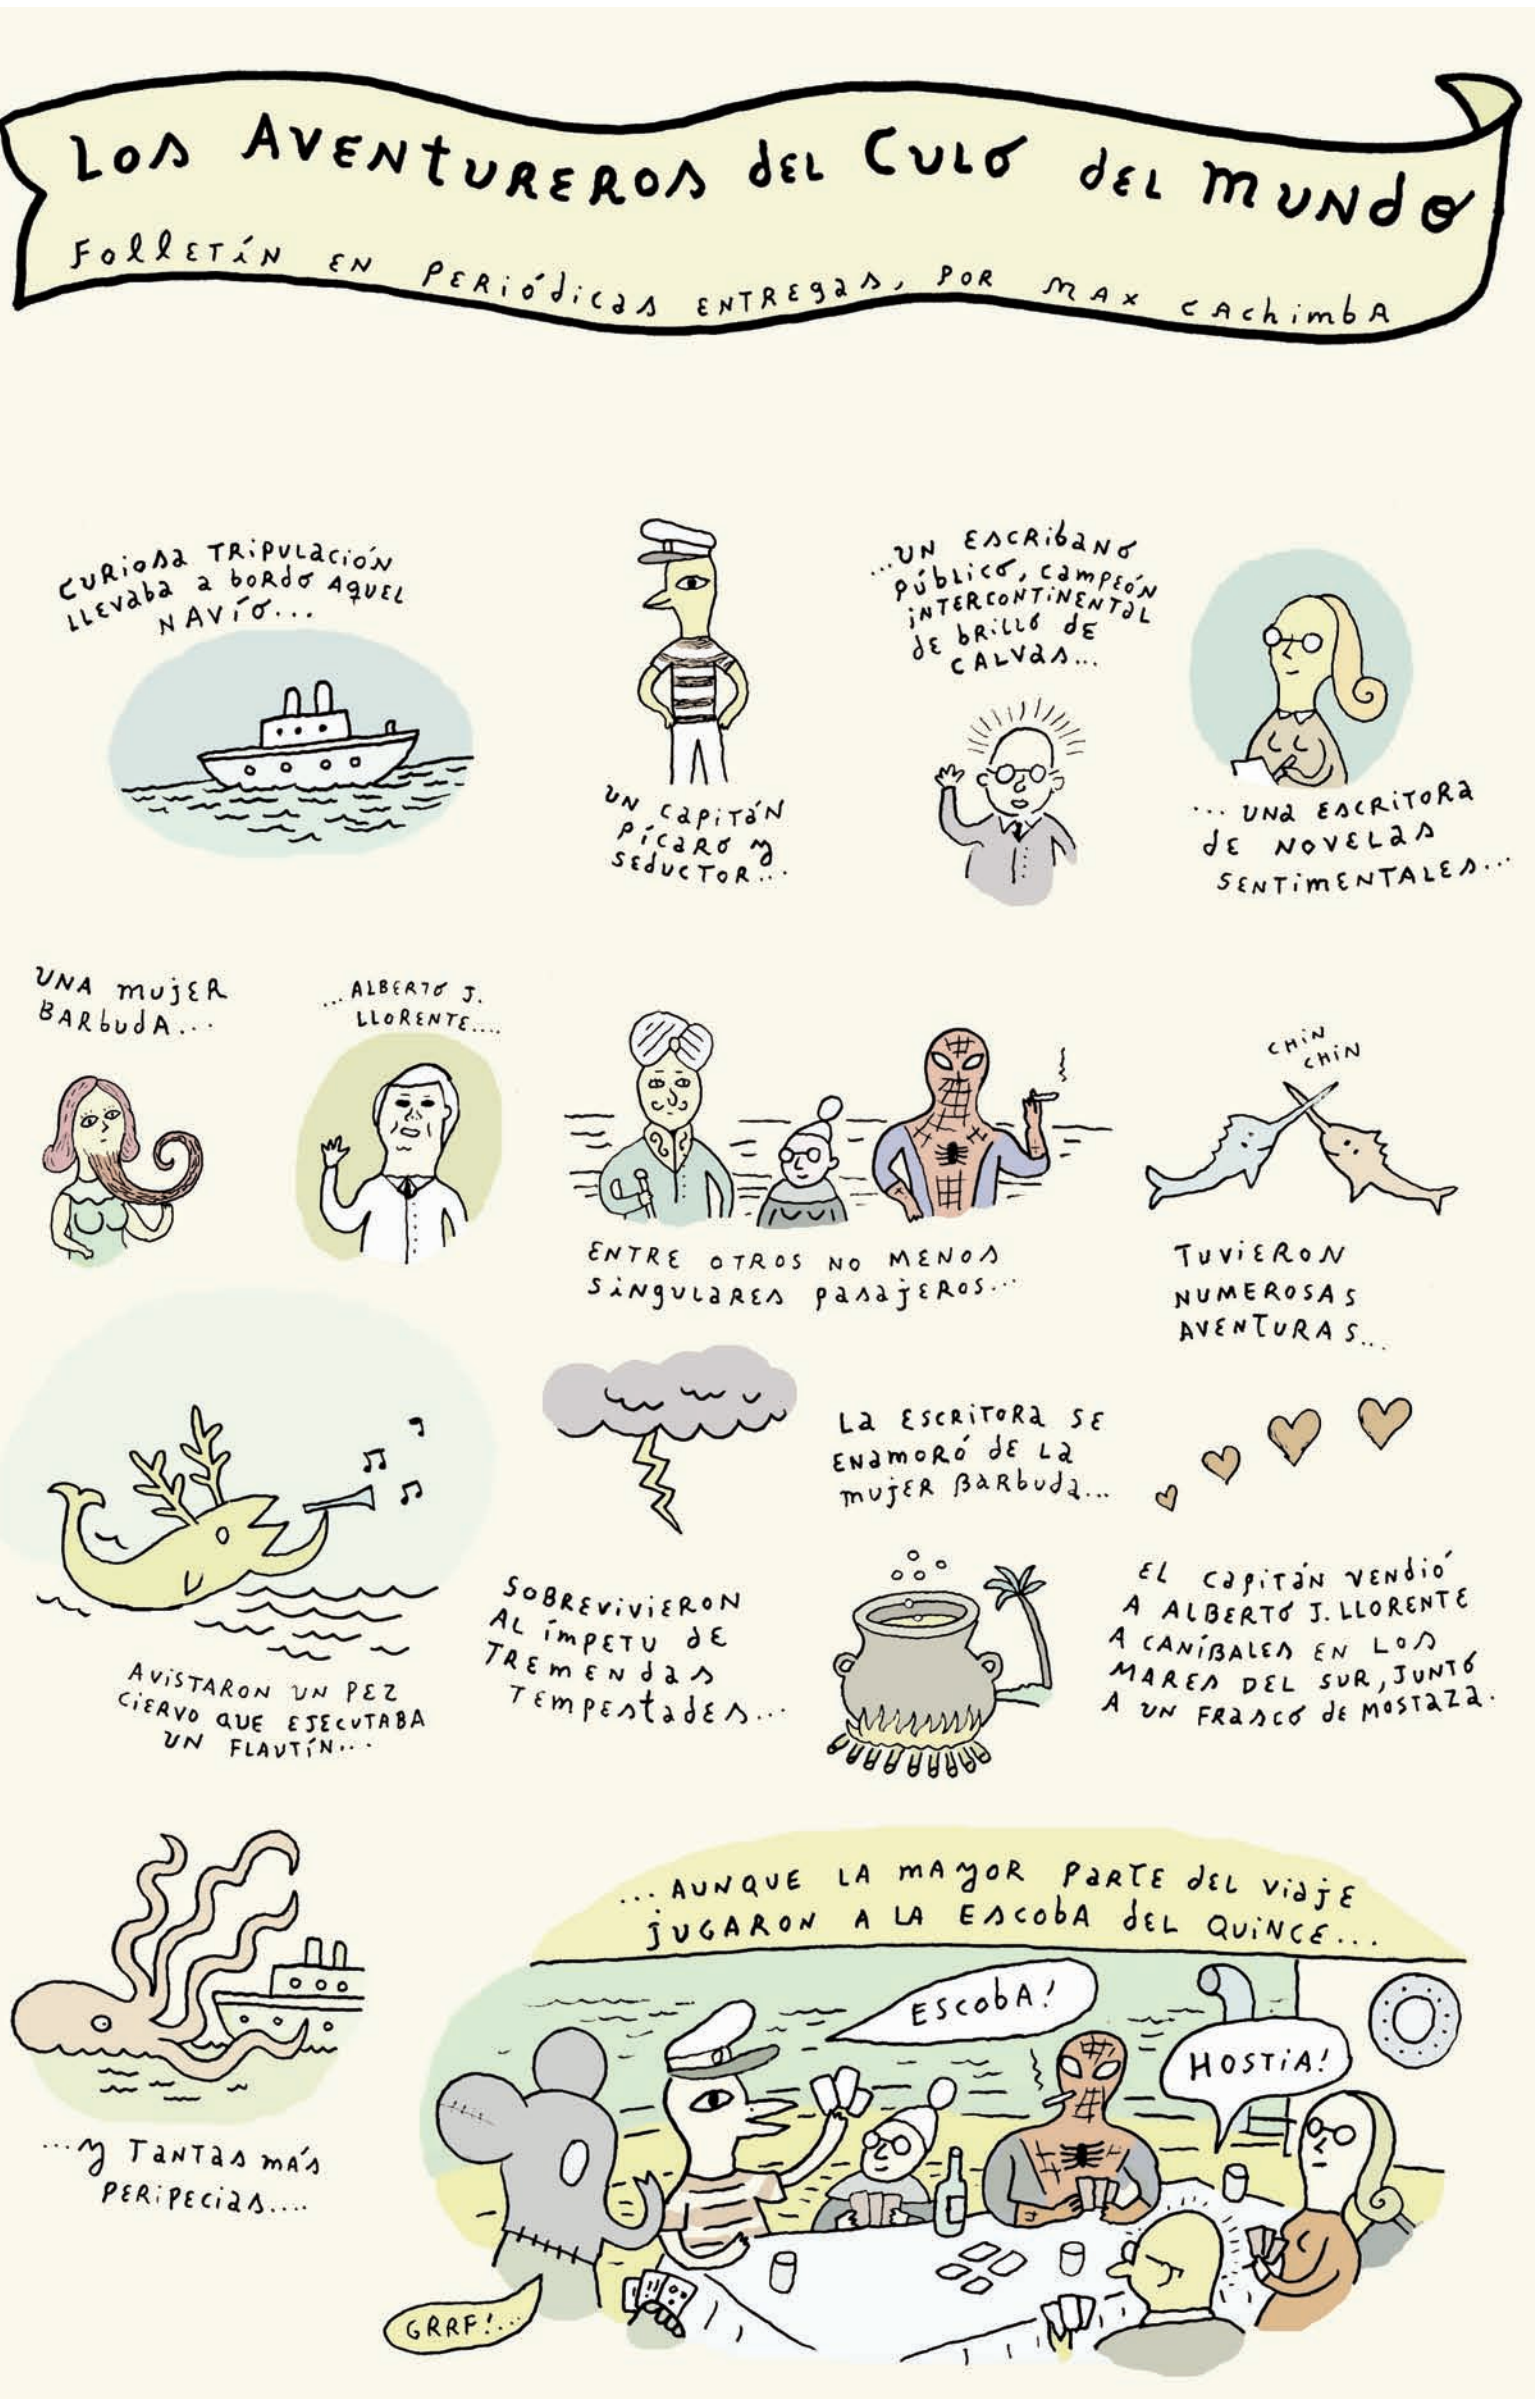 LOS AVENTUREROS DEL CULO DEL MUNDO
FOLLETÍN EN PERIÓDICAS ENTREGAS, POR MAX CACHIMBA
CURIOSA TRIPULACIÓN
LLEVABA A BORDO AQUEL
NAVÍO...
UN CAPITÁN
PÍCARO Y
SEDUCTOR...
...UN ESCRIBANO
PÚBLICO, CAMPEÓN
INTERCONTINENTAL
DE BRILLO DE
CALVAS...
... UNA ESCRITORA
DE NOVELAS
SENTIMENTALES...
UNA MUJER
BARBUDA...
...ALBERTO J.
LLORENTE....
ENTRE OTROS NO MENOS
SINGULARES PASAJEROS...
CHIN
CHIN
TUVIERON
NUMEROSAS
AVENTURAS...
AVISTARON UN PEZ
CIERVO QUE EJECUTABA
UN FLAUTÍN...
SOBREVIVIERON
AL ÍMPETU DE
TREMENDAS
TEMPESTADES...
LA ESCRITORA SE
ENAMORÓ DE LA
MUJER BARBUDA...
EL CAPITÁN VENDIÓ
A ALBERTO J. LLORENTE
A CANÍBALES EN LOS
MARES DEL SUR, JUNTO
A UN FRASCO DE MOSTAZA.
...Y TANTAS MÁS
PERIPECIAS....
...AUNQUE LA MAYOR PARTE DEL VIAJE
JUGARON A LA ESCOBA DEL QUINCE...
ESCOBA!
HOSTIA!
GRRF!...